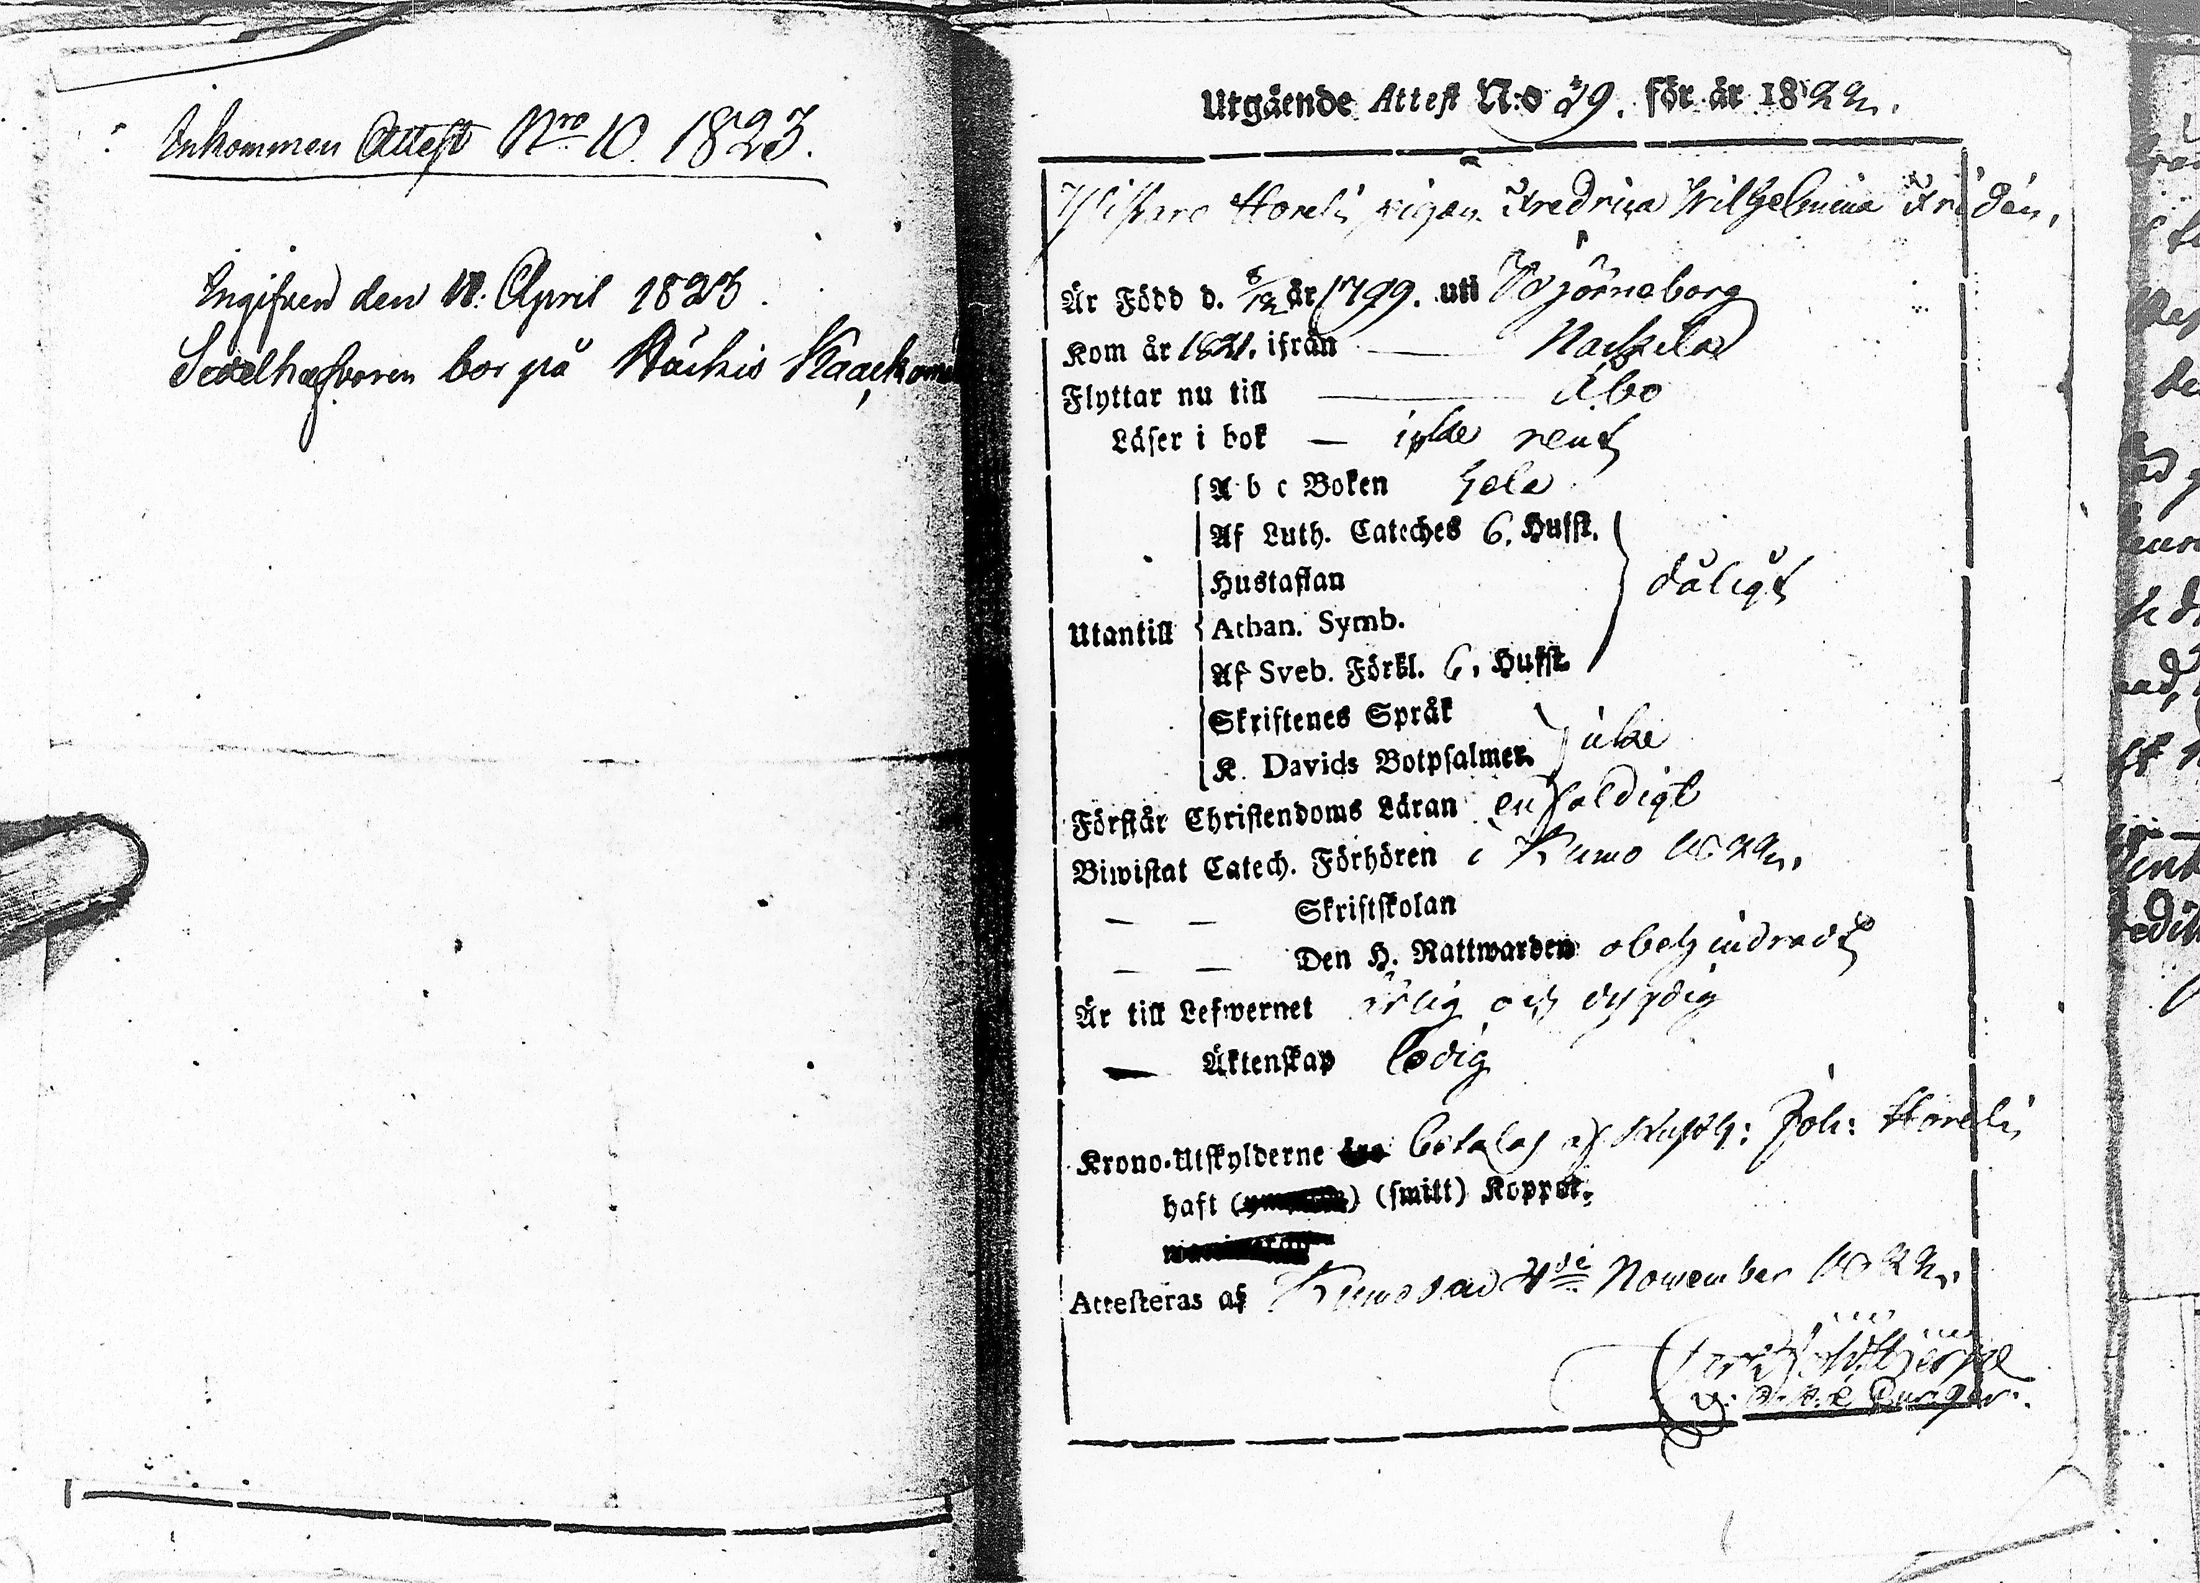 Inkommen Attest Nro 10. 1823.
Ingifven den 11. April 1823.
Sedelhafvaren bor på
Utgående Attest N:o 39. för år 1822.
Horelii pigan Fredrica Wilhelmina Fridén,
Är Född d. 8/12 år 1799. uti Björneborg
Kom år 1821. ifrån — Nackila
Flyttar nu till — Åbo
Läser i bok — icke rent
A b c Boken hela
Af Luth. Cateches 6. Hufst.
Hustaflan
dåligt
Utantill
Athan. Symb.
Af Sveb. Förkl. 6. Hufst.
Skriftenes Språk
icke
K. Davids Botpsalmer.
Förstår Christendoms Läran enfaldigt
Biwistat Catech. Förhören i Kumo 1822.
— — Skriftskolan
— — Den H. Nattwarden obehindradt
Är till Lefwernet ärlig och dygdig
— Äktenskap ledig
Krono-Utskylderne betalas af Joh: Horelii
haft (smitt) Koppor.
Attesteras af Kumo den 4de November 1822.